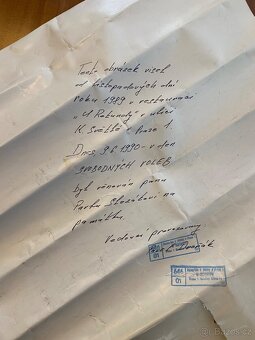 Tento obrázek visel
od listopadových dní
roku 1989 v restauraci
"U Rotundy" v ulici
K. Světlé v Praze 1.
Dnes, 9.6.1990 - v den
SVOBODNÝCH VOLEB
byl věnován panu
Pavlu na
památku.
Vedoucí provozovny
Dvořák
01
01
Bazoš.cz